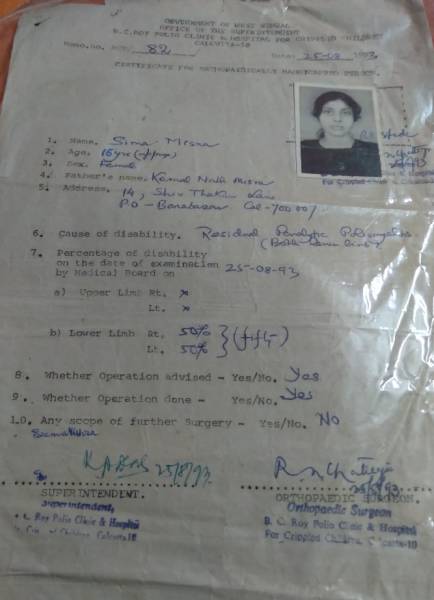 GOVERNMENT OF WEST BENGAL
OFFICE OF THE SUPERINTENDENT
B.C.ROY POLIO CLINIC & HOSPITAL FOR CRIPPLED CHILDREN
CALCUTTA-10
Memo.no. 82 Date: 25-08 1993
CERTIFICATE FOR ORTHOPAEDICALLY HANDICAPPED PERSON.
1. Name. Sima Misra
2. Age. 16 yrs
3. Sex. Female
4. Father's name. Kamal Nath Misra
5. Address. 14, Shiv Thakur Lane
P.O - Barabazar Cal-700007
For Crippled Children, Calcutta-10
6. Cause of disability. Residual Paralytic Poliomyelitis
(Both lower limbs)
7. Percentage of disability
on the date of examination 25-08-93
by Medical Board on
a) Upper Limb Rt. x
Lt. x
b) Lower Limb Rt. 50%
Lt. 50%
8. Whether Operation advised - Yes/No. Yes
9. Whether Operation done - Yes/No. Yes
10. Any scope of further Surgery - Yes/No. No
25/8/93 25/8/93
SUPERINTENDENT. ORTHOPAEDIC SURGEON.
Superintendent, Orthopaedic Surgeon
C. Roy Polio Clinic & Hospital B. C. Roy Polio Clinic & Hospital
Children, Calcutta-10 For Crippled Children, Calcutta-10